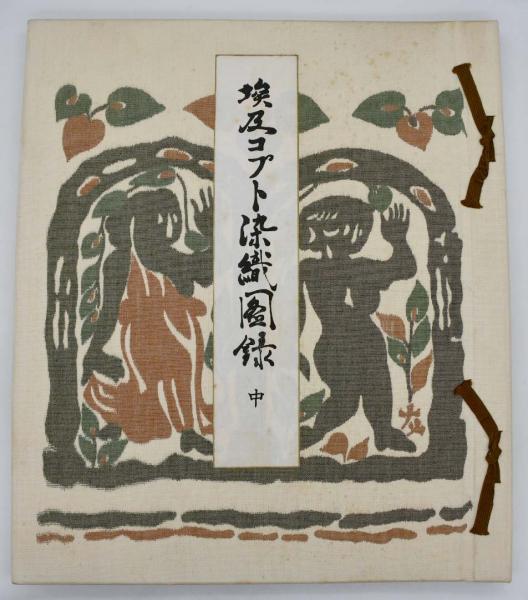 埃及コプト染織圖録
中